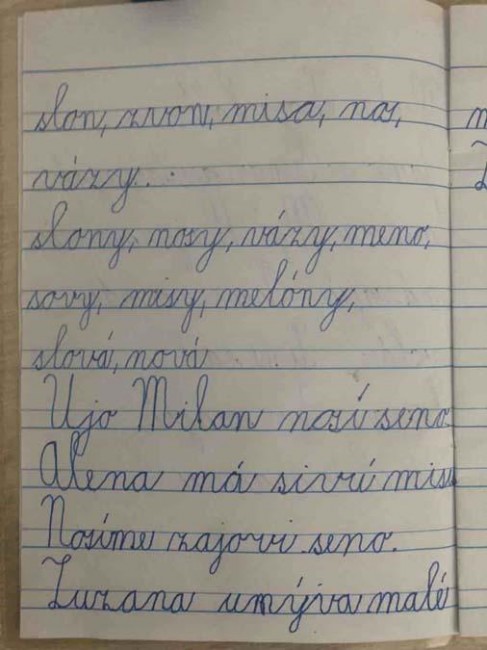 slon, zvon, misa, nos,
vázy.
slony, nosy, vázy, meno,
sovy, misy, melóny,
slová, nová
Ujo Milan nosí seno.
Alena má sivú misu
Nosíme zajovi seno.
Zuzana umýva malé